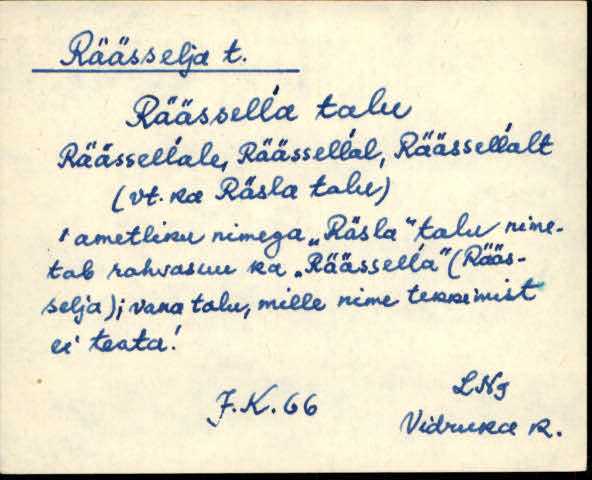 Räässelja t.
Räässell'a talu
Räässell'ale, Räässell'al, Räässell'alt
(vt. ka Räsla talu)
' ametliku nimega „Räsla" talu nime-
tab rahvasuu ka „Räässell'a" (Rääs-
selja); vana talu, mille nime tekkimist
ei teata!
J.K. 66
LNg
Vidruka k.